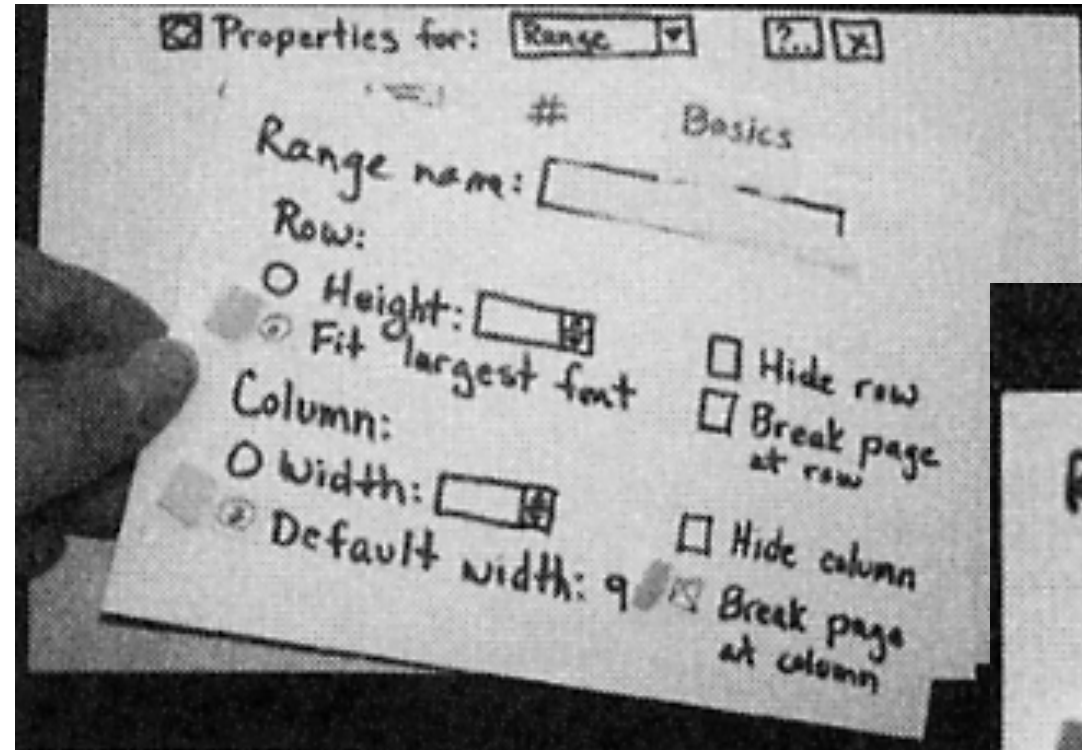 Properties for: Range ?.. x
# Basics
Range name:
Row:
Height:
Fit largest font
Hide row
Break page
at row
Column:
Width:
Default width: 9
Hide column
Break page
at column